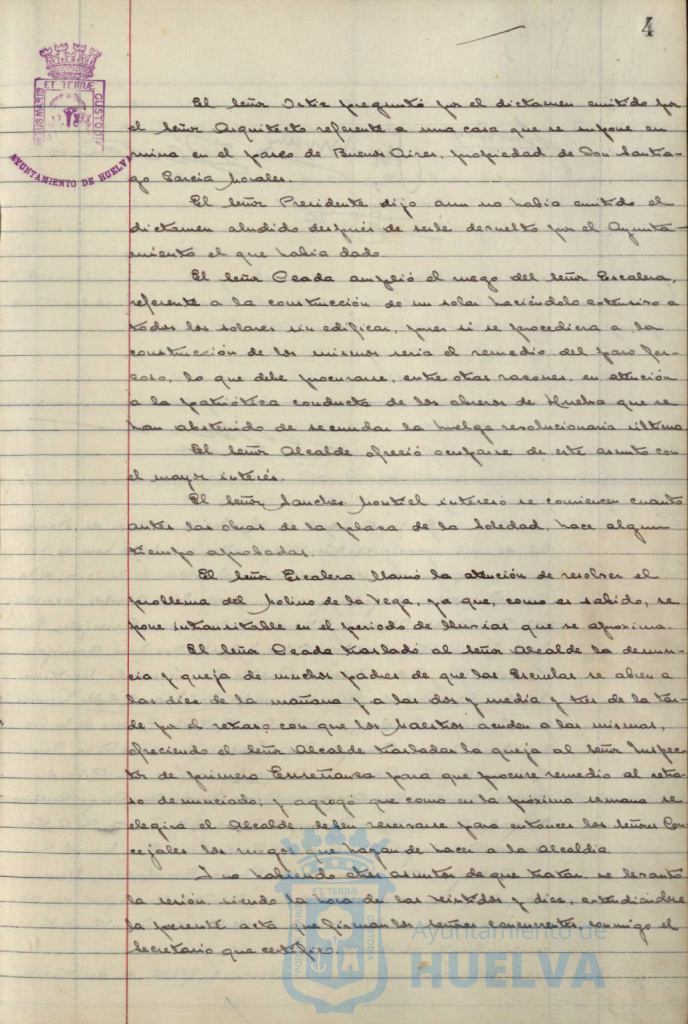 4
PORTUS MARIS
ET TERRÆ
CUSTODIA
AYUNTAMIENTO DE HUELVA
El Señor Ortiz preguntó por el dictamen emitido por
el Señor Arquitecto referente a una casa que se supone en
ruina en el paseo de Buenos Aires, propiedad de Don Santia-
go García Morales.
El Señor Presidente dijo aun no había emitido el
dictamen aludido después de serle devuelto por el Ayunta-
miento el que había dado.
El Señor Ceada amplió el ruego del Señor Escalera,
referente a la construcción de un solar haciéndolo extensivo a
todos los solares sin edificar, pues si se procediera a la
construcción de los mismos seria el remedio del paro for-
zoso, lo que debe procurarse, entre otras razones, en atención
a la patriótica conducta de los obreros de Huelva que se
han abstenido de secundar la huelga revolucionaria última
El Señor Alcalde ofreció ocuparse de este asunto con
el mayor interés.
El Señor Sanchez Montiel interesó se comiencen cuanto
antes las obras de la plaza de la Soledad, hace algun
tiempo aprobadas.
El Señor Escalera llamó la atención de resolver el
problema del Molino de la Vega, ya que, como es sabido, se
pone intransitable en el periodo de lluvias que se aproxima.
El Señor Ceada trasladó al Señor Alcalde la denun-
cia y queja de muchos padres de que las Escuelas se abren a
las diez de la mañana y a las dos y media y tres de la tar-
de por el retraso con que los Maestros acuden a las mismas,
ofreciendo el Señor Alcalde trasladar la queja al Señor Inspec-
tor de primera Enseñanza para que procure remedio al retra-
so denunciado; y agregó que como en la próxima semana se
elegirá el Alcalde, deben reservarse para entonces los señores Con-
cejales los ruegos que hayan de hacer a la Alcaldía
Y no habiendo otros asuntos de que tratar, se levantó
la sesión, siendo la hora de las veintidos y diez, extendiéndose
la presente acta que firman los señores concurrentes, conmigo el
Secretario que certifico.
PORTUS MARIS
ET TERRÆ
CUSTODIA
Ayuntamiento de
HUELVA